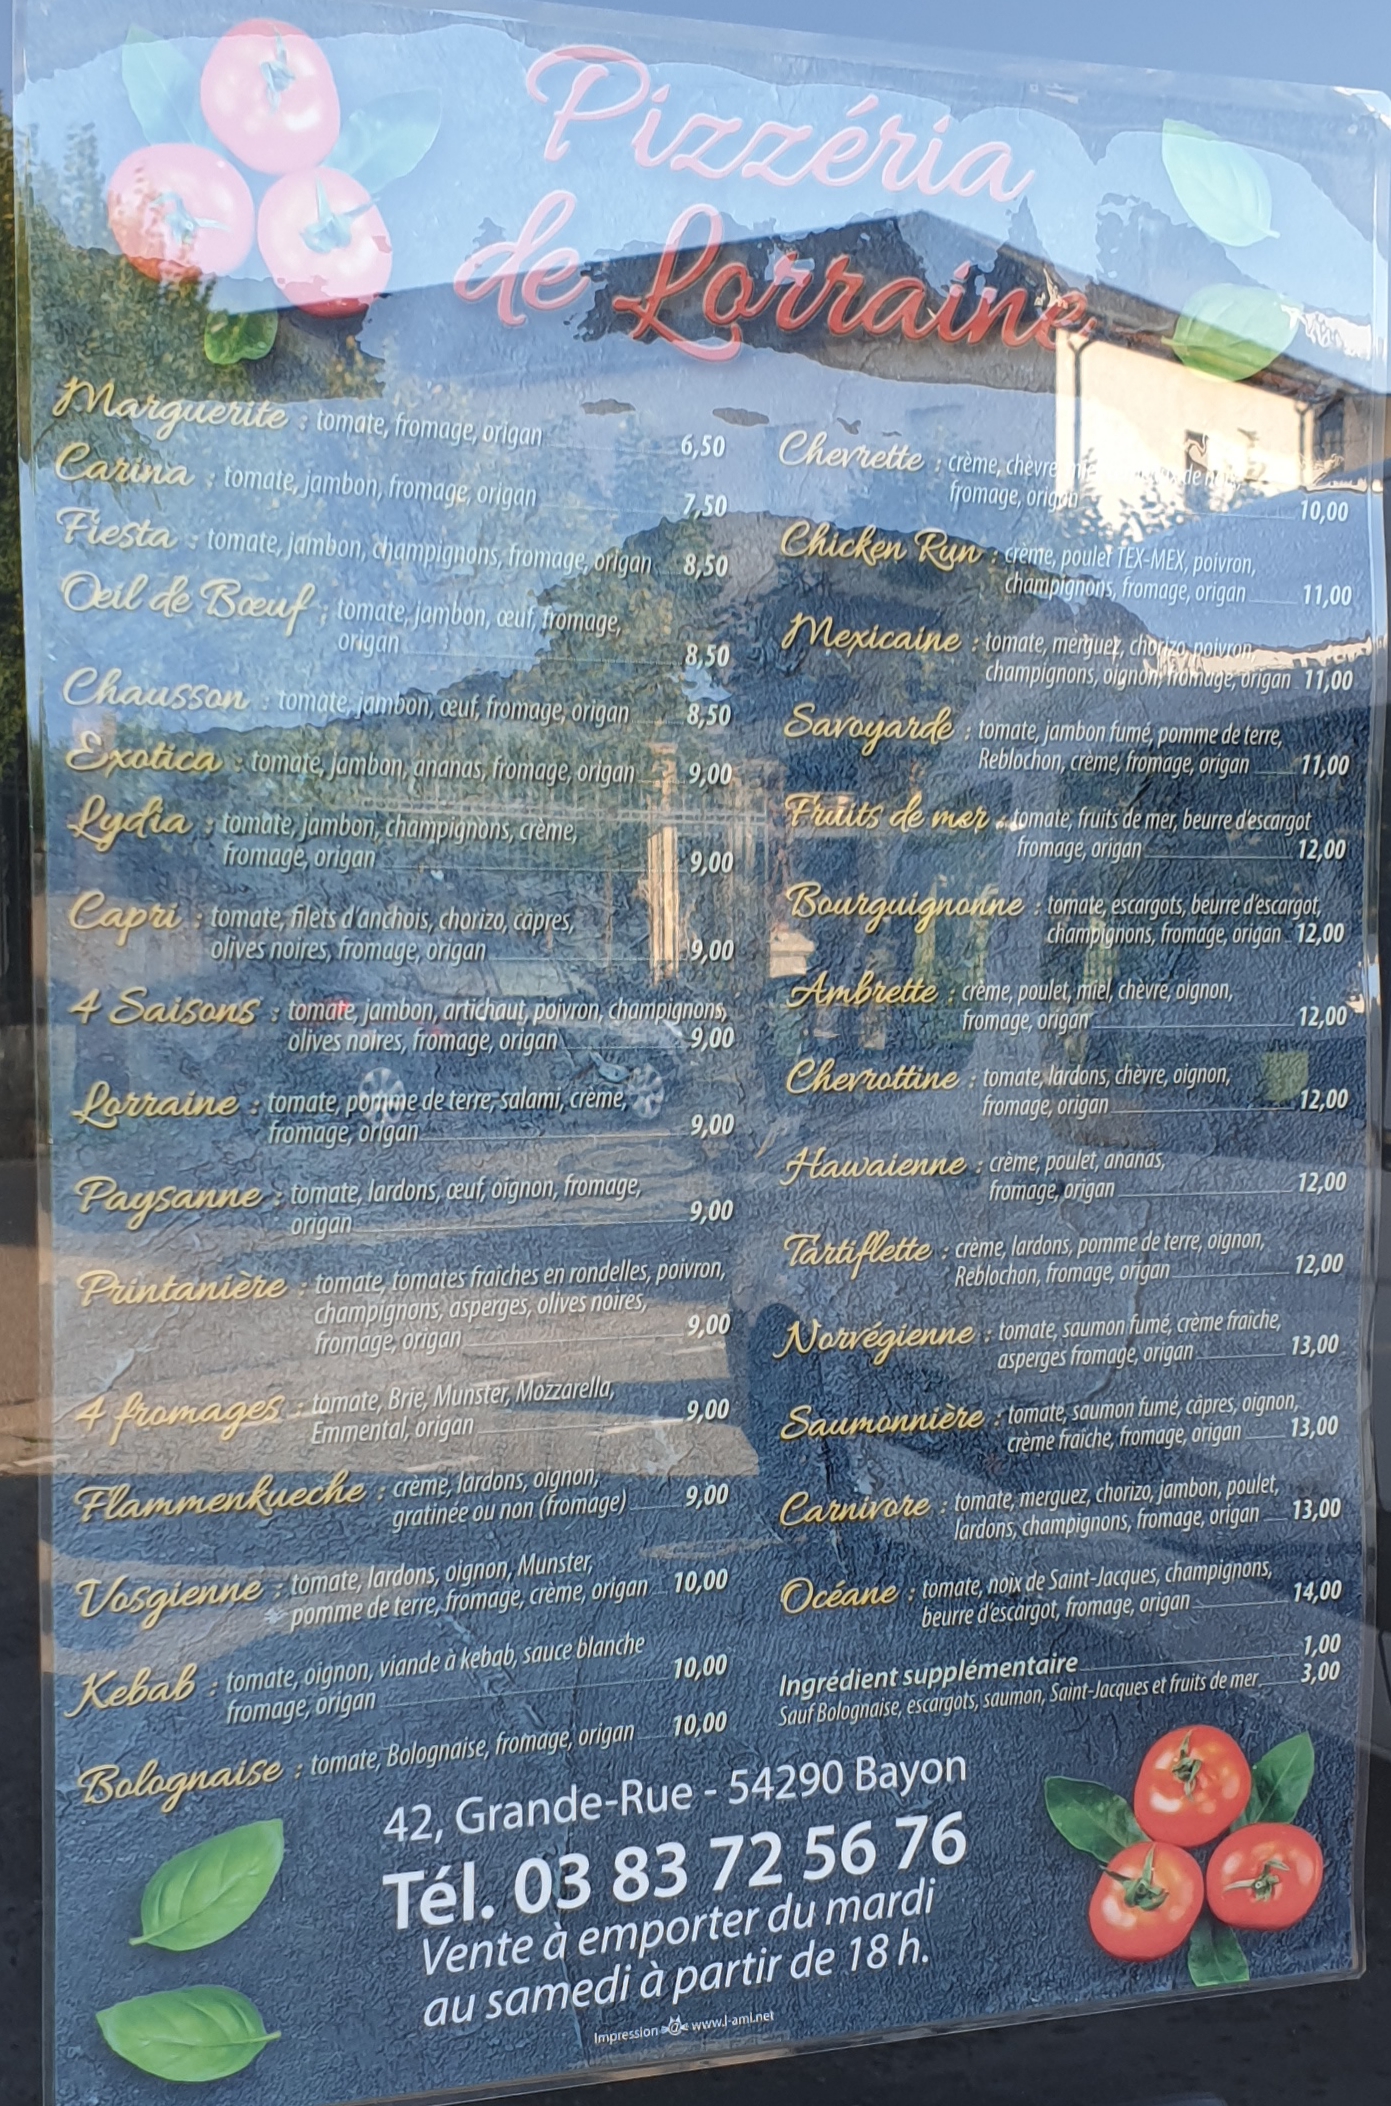 Pizzéria
de Lorraine
Marguerite : tomate, fromage, origan 6,50
Carina : tomate, jambon, fromage, origan 7,50
Fiesta : tomate, jambon, champignons, fromage, origan 8,50
Œil de Bœuf : tomate, jambon, œuf, fromage,
origan 8,50
Chausson : tomate, jambon, œuf, fromage, origan 8,50
Exotica : tomate, jambon, ananas, fromage, origan 9,00
Lydia : tomate, jambon, champignons, crème,
fromage, origan 9,00
Capri : tomate, filets d'anchois, chorizo, câpres,
olives noires, fromage, origan 9,00
4 Saisons : tomate, jambon, artichaut, poivron, champignons,
olives noires, fromage, origan 9,00
Lorraine : tomate, pomme de terre, salami, crème,
fromage, origan 9,00
Paysanne : tomate, lardons, œuf, oignon, fromage,
origan 9,00
Printanière : tomate, tomates fraîches en rondelles, poivron,
champignons, asperges, olives noires,
fromage, origan 9,00
4 fromages : tomate, Brie, Munster, Mozzarella,
Emmental, origan 9,00
Flammenkueche : crème, lardons, oignon,
gratinée ou non (fromage) 9,00
Vosgienne : tomate, lardons, oignon, Munster,
pomme de terre, fromage, crème, origan 10,00
Kebab : tomate, oignon, viande à kebab, sauce blanche
fromage, origan 10,00
Bolognaise : tomate, Bolognaise, fromage, origan 10,00
Chevrette : crème, chèvre, de
fromage, origan 10,00
Chicken Run : crème, poulet TEX-MEX, poivron,
champignons, fromage, origan 11,00
Mexicaine : tomate, merguez, chorizo, poivron,
champignons, oignon, fromage, origan 11,00
Savoyarde : tomate, jambon fumé, pomme de terre,
Reblochon, crème, fromage, origan 11,00
Fruits de mer : tomate, fruits de mer, beurre d'escargot
fromage, origan 12,00
Bourguignonne : tomate, escargots, beurre d'escargot,
champignons, fromage, origan 12,00
Ambrette : crème, poulet, miel, chèvre, oignon,
fromage, origan 12,00
Chevrottine : tomate, lardons, chèvre, oignon,
fromage, origan 12,00
Hawaienne : crème, poulet, ananas,
fromage, origan 12,00
Tartiflette : crème, lardons, pomme de terre, oignon,
Reblochon, fromage, origan 12,00
Norvégienne : tomate, saumon fumé, crème fraîche,
asperges fromage, origan 13,00
Saumonnière : tomate, saumon fumé, câpres, oignon,
crème fraîche, fromage, origan 13,00
Carnivore : tomate, merguez, chorizo, jambon, poulet,
lardons, champignons, fromage, origan 13,00
Océane : tomate, noix de Saint-Jacques, champignons,
beurre d'escargot, fromage, origan 14,00
Ingrédient supplémentaire 1,00
Sauf Bolognaise, escargots, saumon, Saint-Jacques et fruits de mer 3,00
42, Grande-Rue - 54290 Bayon
Tél. 03 83 72 56 76
Vente à emporter du mardi
au samedi à partir de 18 h.
Impression www.l-ami.net